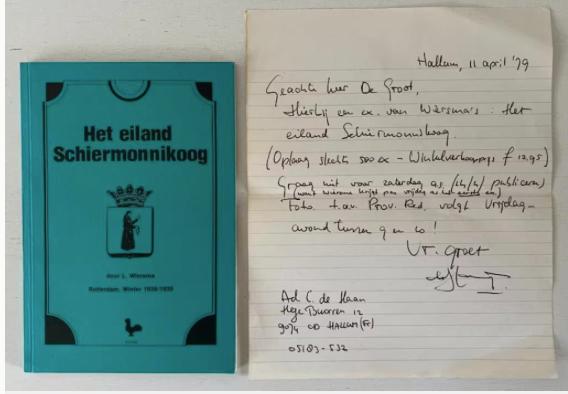 Het eiland
Schiermonnikoog
door L. Wiersma
Rotterdam, Winter 1938-1939
Hallum, 11 april '79
Geachte heer De Groot,
Hierbij een ex. van Wiersma's: Het
eiland Schiermonnikoog.
(Oplaag slechts 500 ex - Winkelverkoopprijs f 12,95)
Graag niet voor zaterdag a.s. (14/4) publiceren
(want Wiersma krijgt pas vrijdag as het eerste ex.)
Foto t.a.v. Prov. Red. volgt vrijdag-
avond tussen 9 en 10!
Vr. groet
Ad C. de Haan
Hege Buorren 12
9074 CD HALLUM (Fr)
05183-532